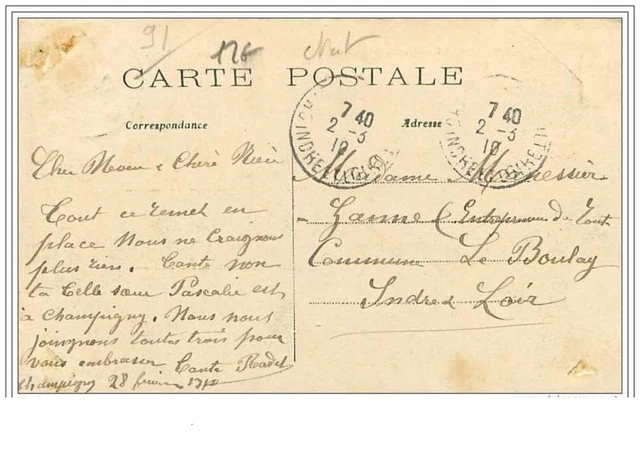 91
126
CARTE POSTALE
Correspondance
Adresse
7 40
2 - 3
10
INDRE
7 40
2 - 3
10
INDRE
Cher Neveu & Chère Nièce
Tout ce remet en
place Nous ne Craignons
plus rien. Tante non
ta belle sœur Pascaline est
à Champigny. Nous nous
joingnons toutes trois pour
vous embrasser Tante
Champigny 28 février 1910
Madame
Entrepreneur de
Commune Le Boulay
Indre & Loir